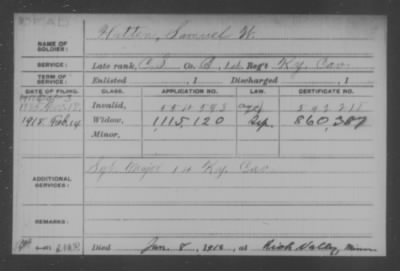 DEAD
NAME OF SOLDIER: Hutton, Samuel W.
SERVICE: Late rank, C.S. Co. B, 1st Reg't Ky. Cav.
TERM OF SERVICE: Enlisted , 1 Discharged , 1
DATE OF FILING. CLASS. APPLICATION NO. LAW. CERTIFICATE NO.
Invalid,
1918 Feb. 14 Widow, 1,115,120 860,387
Minor,
ADDITIONAL SERVICES: Sgt. Major 1st Ky. Cav.
REMARKS:
Died Jan. 8, 1918, at Rich Valley, Minn